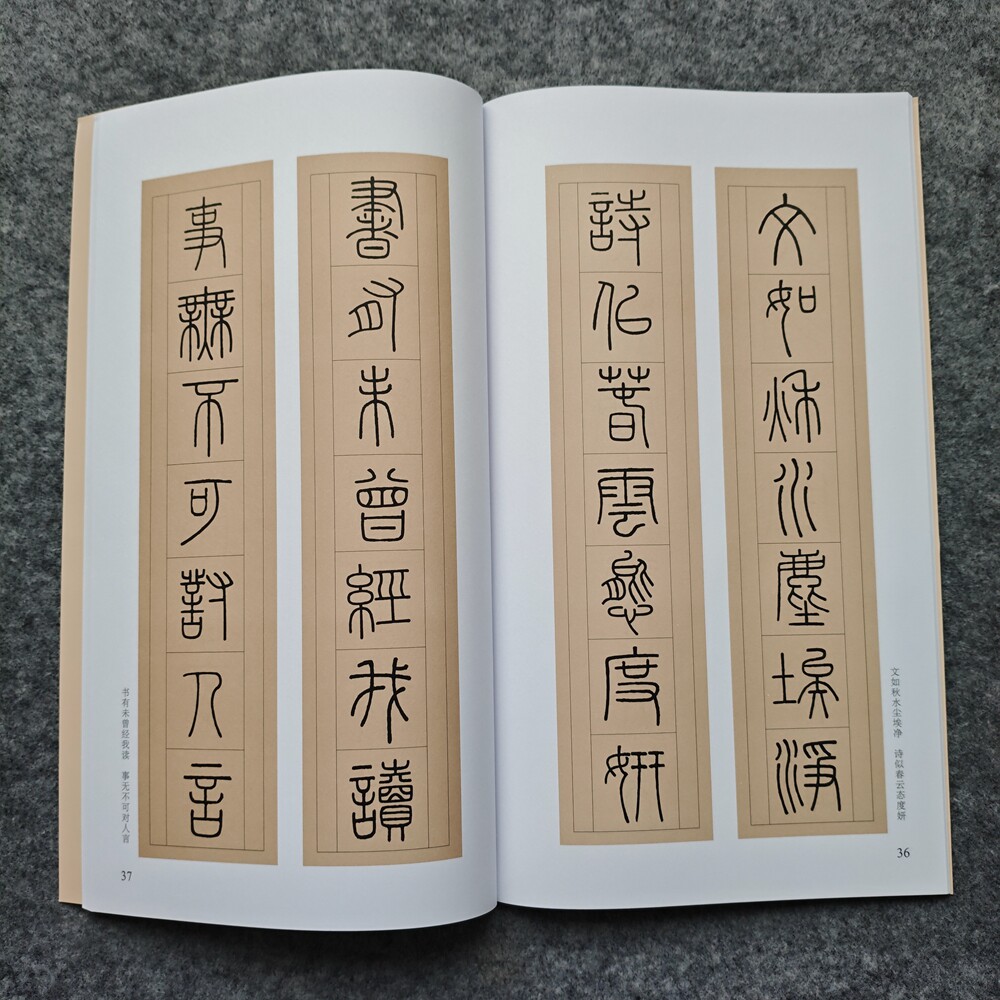 文如秋水塵埃淨
詩似春雲態度妍
文如秋水尘埃净 诗似春云态度妍
36
書有未曾經我讀
事無不可對人言
书有未曾经我读 事无不可对人言
37